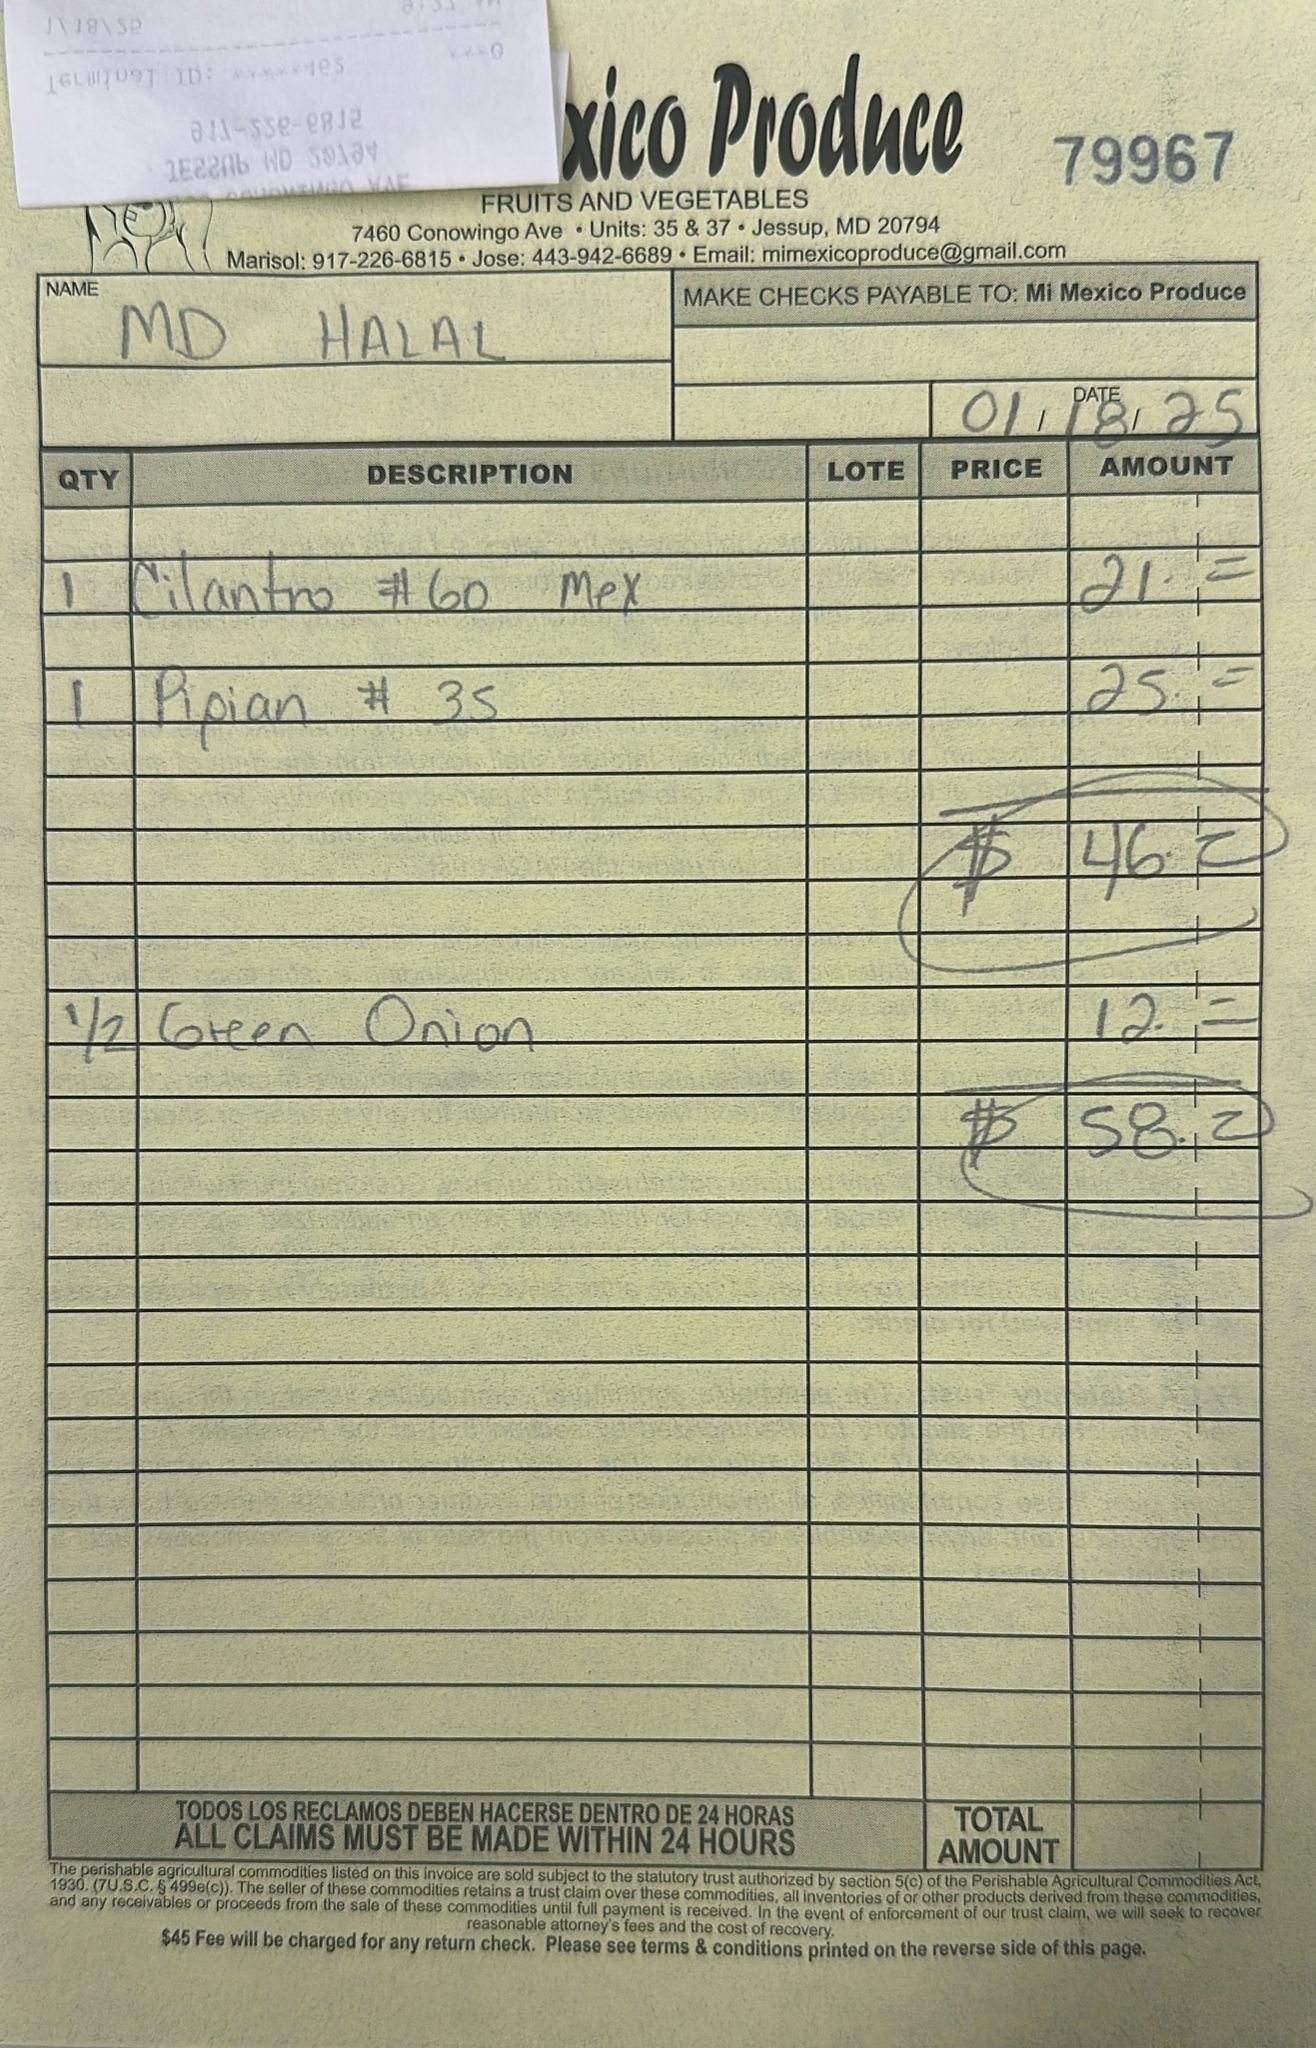 1/18/25
Terminal ID: *****462 ***0
917-226-6815
JESSUP MD 20794
CONOWINGO AVE
xico Produce
79967
FRUITS AND VEGETABLES
7460 Conowingo Ave • Units: 35 & 37 • Jessup, MD 20794
Marisol: 917-226-6815 • Jose: 443-942-6689 • Email: mimexicoproduce@gmail.com
NAME
MD HALAL
MAKE CHECKS PAYABLE TO: Mi Mexico Produce
DATE
01/18/25
QTY DESCRIPTION LOTE PRICE AMOUNT
1 Cilantro #60 Mex 21. =
1 Pipian # 35 25. =
$ 46. =
1/2 Green Onion 12. =
$ 58. =
TODOS LOS RECLAMOS DEBEN HACERSE DENTRO DE 24 HORAS
ALL CLAIMS MUST BE MADE WITHIN 24 HOURS
TOTAL
AMOUNT
The perishable agricultural commodities listed on this invoice are sold subject to the statutory trust authorized by section 5(c) of the Perishable Agricultural Commodities Act,
1930. (7U.S.C. § 499e(c)). The seller of these commodities retains a trust claim over these commodities, all inventories of or other products derived from these commodities,
and any receivables or proceeds from the sale of these commodities until full payment is received. In the event of enforcement of our trust claim, we will seek to recover
reasonable attorney's fees and the cost of recovery.
$45 Fee will be charged for any return check. Please see terms & conditions printed on the reverse side of this page.